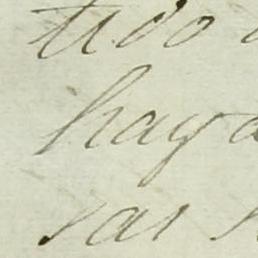 tido
haya
sar